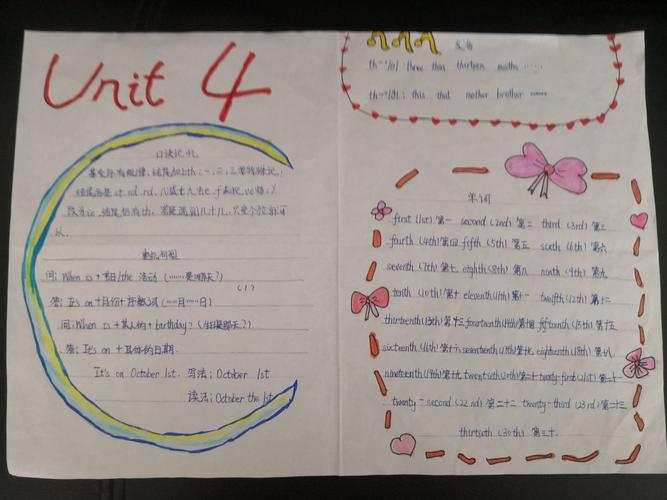 Unit 4
口诀记忆
基变序有规律,结尾加上th;一、二、三单独记,
结尾各是st,nd,rd,八减t九去e,f来把ve替,
段变ie,结尾仍有th,若是遇到几十几,只变个位就可
以。
重点句型
问:When is +节日/the 活动(……是哪天?)
答:It's on +月份+序数词(……月……日)
问:When is +某人的+birthday?(生日是那天?)
答:It's on +具体的日期.
It's on October 1st. 写法:October 1st
读法:October the 1st
发音
th-/θ/: three than thirteen maths ……
th-/ð/: this that mother brother ……
单词
first (1st) 第一 second (2nd) 第二 third (3rd) 第三
fourth (4th) 第四 fifth (5th) 第五 sixth (6th) 第六
seventh (7th) 第七 eighth (8th) 第八 ninth (9th) 第九
tenth (10th) 第十 eleventh (11th) 第十一 twelfth (12th) 第十二
thirteenth (13th) 第十三 fourteenth (14th) 第十四 fifteenth (15th) 第十五
sixteenth (16th) 第十六 seventeenth (17th) 第十七 eighteenth (18th) 第十八
nineteenth (19th) 第十九 twentieth (20th) 第二十 twenty-first (21st) 第二十一
twenty-second (22nd) 第二十二 twenty-third (23rd) 第二十三
thirtieth (30th) 第三十.